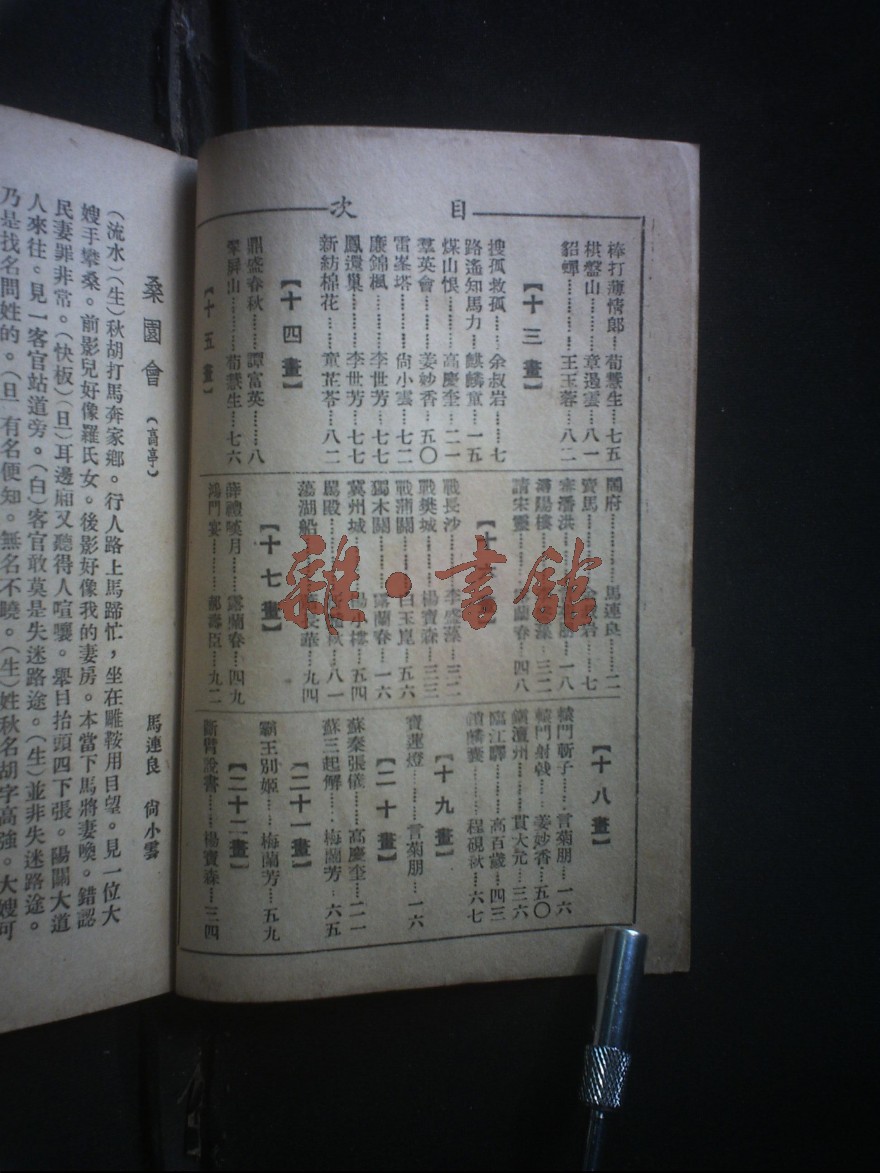 目次
棒打薄情郎……荀慧生…七五
棋盤山……章遏雲…八一
貂蟬……王玉蓉…八二
【十三畫】
搜孤救孤……余叔岩……七
路遙知馬力…麒麟童…一五
煤山恨……高慶奎…二一
羣英會……姜妙香…五〇
雷峯塔……尙小雲…七二
廉錦楓……李世芳…七七
鳳還巢……李世芳…七七
新紡棉花……童芷苓…八二
【十四畫】
鼎盛春秋……譚富英……八
翠屛山……荀慧生…七六
【十五畫】
鬧府……馬連良……二
賣馬……余叔岩……七
審潘洪……一八
潯陽樓……三二
請宋靈……蘭春…四八
【十
戰長沙……李盛藻…三二
戰樊城……楊寶森…三三
戰蒲關……白玉崑…五六
獨木關……露蘭春…一六
冀州城……樓…五四
罵殿……秋…八一
蕩湖船……華…九四
【十七畫】
薛禮嘆月……露蘭春…四九
鴻門宴……郝壽臣…九二
【十八畫】
轅門斬子……言菊朋…一六
轅門射戟……姜妙香…五〇
鎭澶州……貫大元…三六
臨江驛……高百歲…四三
鎖麟囊……程硯秋…六七
【十九畫】
寶蓮燈……言菊朋…一六
【二十畫】
蘇秦張儀……高慶奎…二一
蘇三起解……梅蘭芳…六五
【二十一畫】
霸王別姬……梅蘭芳…五九
【二十二畫】
斷臂說書……楊寶森…三四
桑園會（高亭）　馬連良　尙小雲
（流水）（生）秋胡打馬奔家鄉。行人路上馬蹄忙，坐在雕鞍用目望。見一位大
嫂手攀桑。前影兒好像羅氏女。後影好像我的妻房。本當下馬將妻喚。錯認
民妻罪非常。（快板）（旦）耳邊廂又聽得人喧嚷。舉目抬頭四下張。陽關大道
人來往。見一客官站道旁。（白）客官敢莫是失迷路途。（生）並非失迷路途。
乃是找名問姓的。（旦）有名便知。無名不曉。（生）姓秋名胡字高強。大嫂可
雜·書館